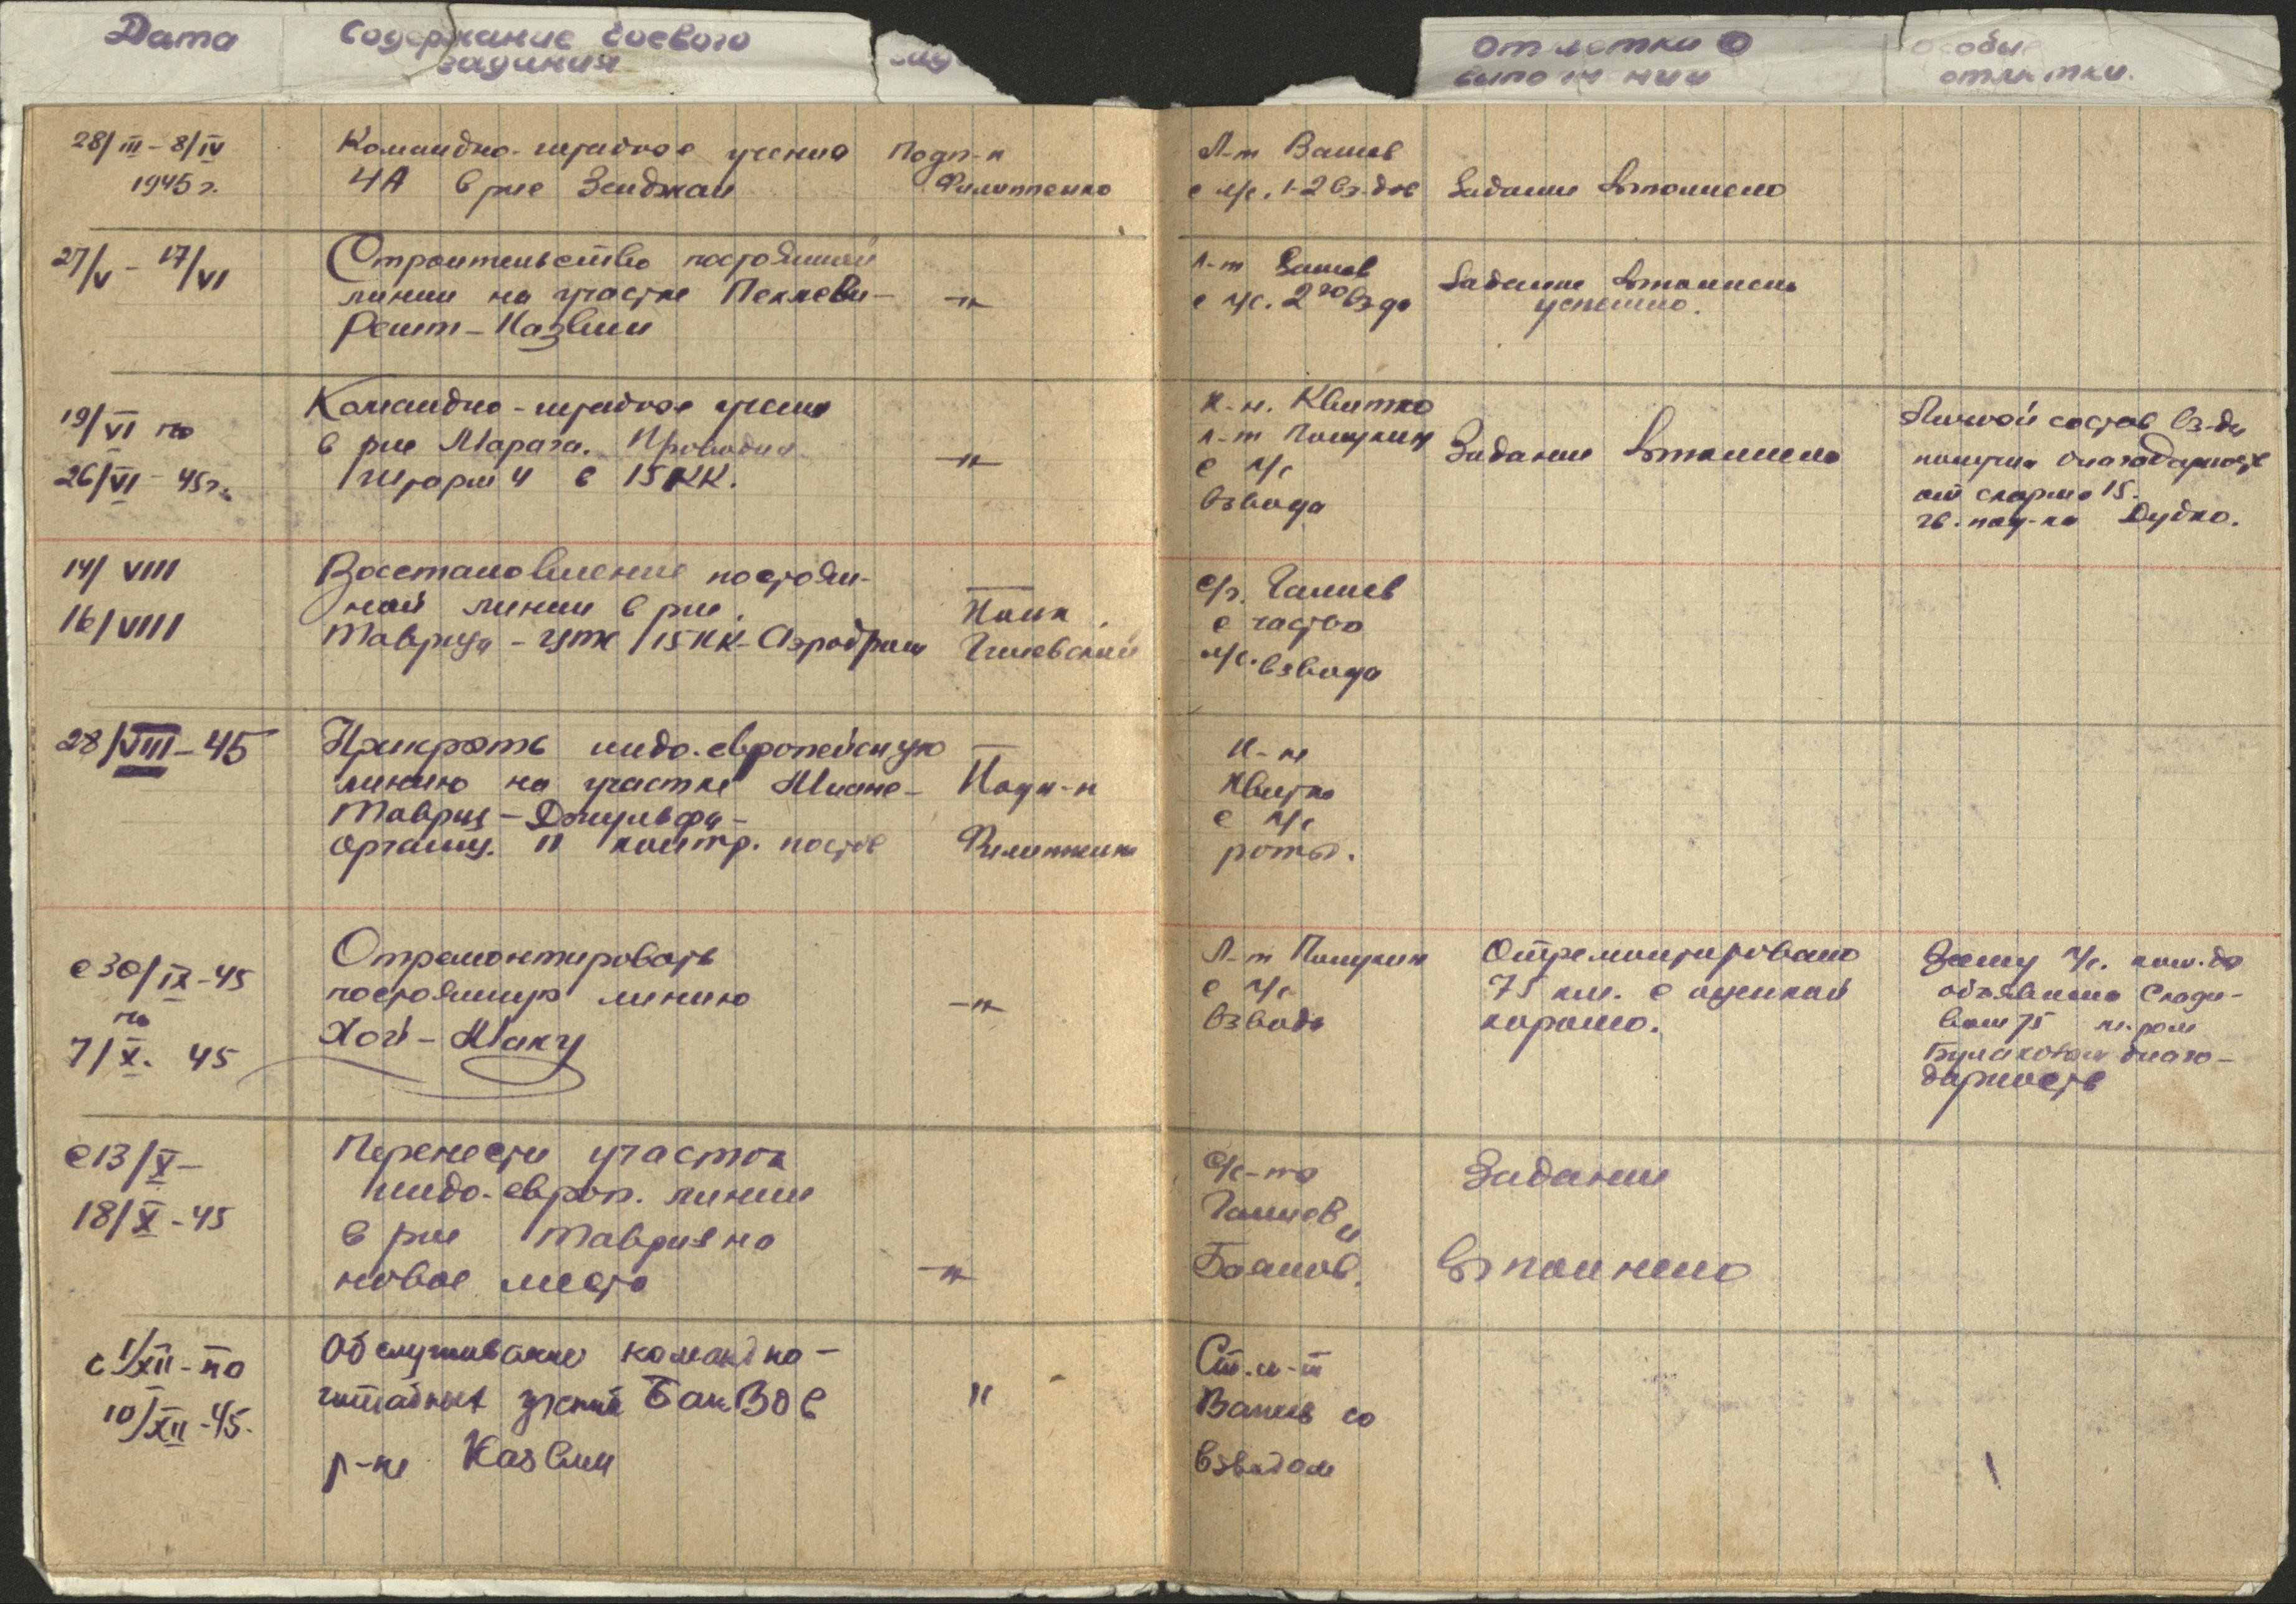 Дата
Содержание боевого
задания
Отметки о
выполнении
Особые
отметки.
28/III – 8/IV
1945 г.
Командно-штабное учение
4А в р-не Зенджан
Подп-к
Филиппенко
Л-т Ващев
с л/с. 1-2 вз-дов
Задание выполнено
27/V – 17/VI
Строительство постоянной
линии на участке Пехлеви-
Решт-Казвин
-"-
л-т Ващев
с л/с. 2го вз-да
Задание выполнено
успешно.
19/VI по
26/VI – 45г.
Командно-штабное учение
в р-не Марага. Проводил
штарм 4 с 15 КК.
-"-
К-н. Квитко
л-т Полукин
с л/с
взвода
Задание выполнено
Личный состав вз-да
получил благодарность
от
гв. по-ка Дудко.
14/VIII
16/VIII
Восстановление постоян-
ной линии в р-не
Тавриза – УТК /15 КК – Аэродром
с/з. Галиев
с частью
л/с. взвода
28/VIII – 45
Прикрыть индо-европейскую
линию на участке Миане-
Тавриз – Джульфа –
организ. 11 контр. постов
Подп-к
Филиппенко
К-н
Квитко
с л/с
роты.
с 30/IX-45
по
7/X. 45
Отремонтировать
постоянную линию
Хой – Маку
-"-
Л-т Полукин
с л/с
взвода
Отремонтировано
75 км. с оценкой
хорошо.
Всему л/с.
объявлена
75
благо-
дарность
с 13/X –
18/X – 45
Перенести участок
индо-европ. линии
в р-не Тавриз на
новое место
-"-
с/с-та
Галиев и
Баянов.
Задание
выполнено
с 1/XII – по
10/XII – 45.
Обслуживание командно-
штабных учений БакВО в
р-не Казвин
"
Ст. л-т
Ващев со
взводом